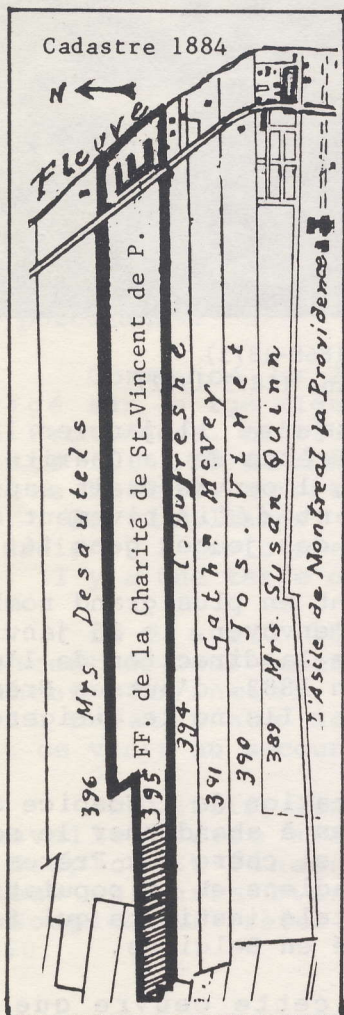 Cadastre 1884
N
Fleuve
396 Mrs Desautels
395 FF. de la Charité de St-Vincent de P.
394 L. Dufresne
391 Cath. McVey
390 Jos Vinet
389 Mrs. Susan Quinn
Asile de Montreal la Providence